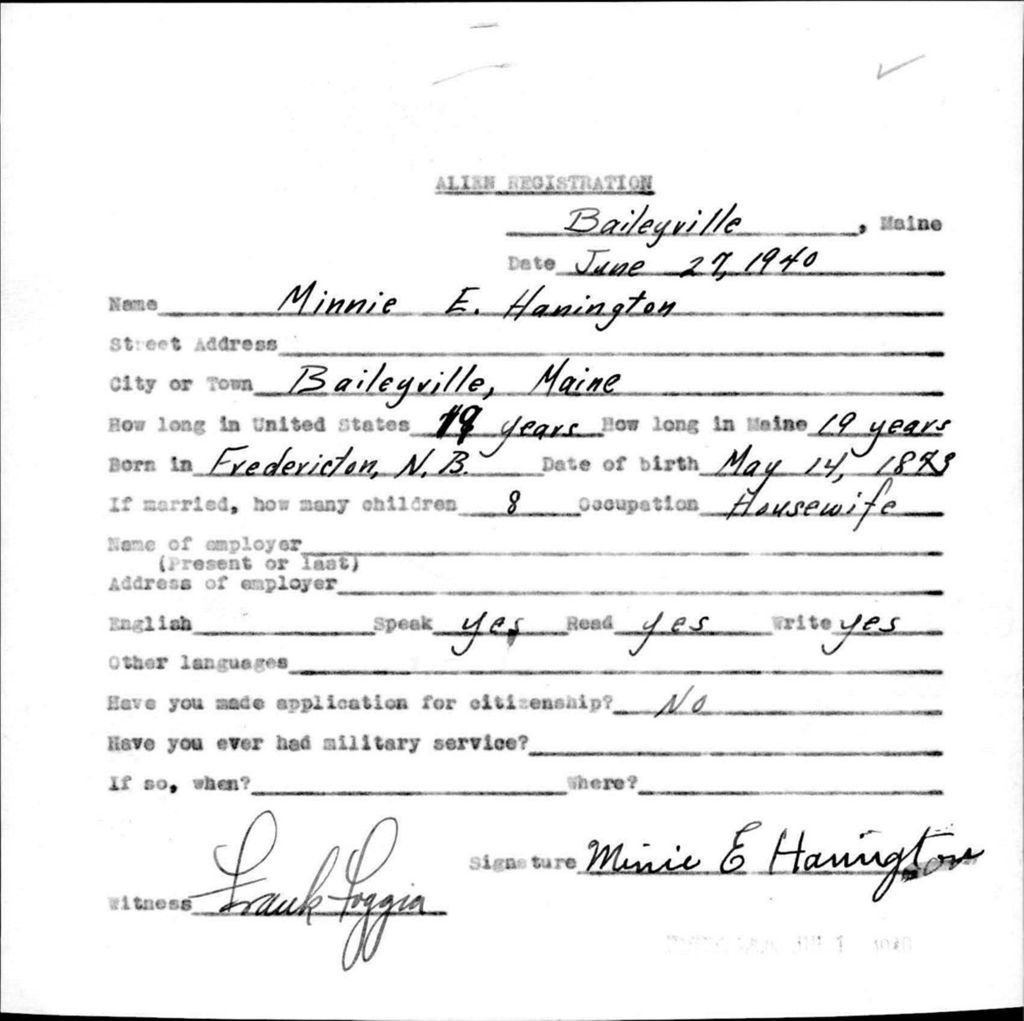 ALIEN REGISTRATION
Baileyville, Maine
Date June 27, 1940
Name Minnie E. Hanington
Street Address
City or Town Baileyville, Maine
How long in United States 19 years How long in Maine 19 years
Born in Fredericton, N.B. Date of birth May 14, 1873
If married, how many children 8 Occupation Housewife
Name of employer
(Present or last)
Address of employer
English Speak yes Read yes Write yes
Other languages
Have you made application for citizenship? No
Have you ever had military service?
If so, when? Where?
Signature Minie E Hanington
Witness Frank Foggia